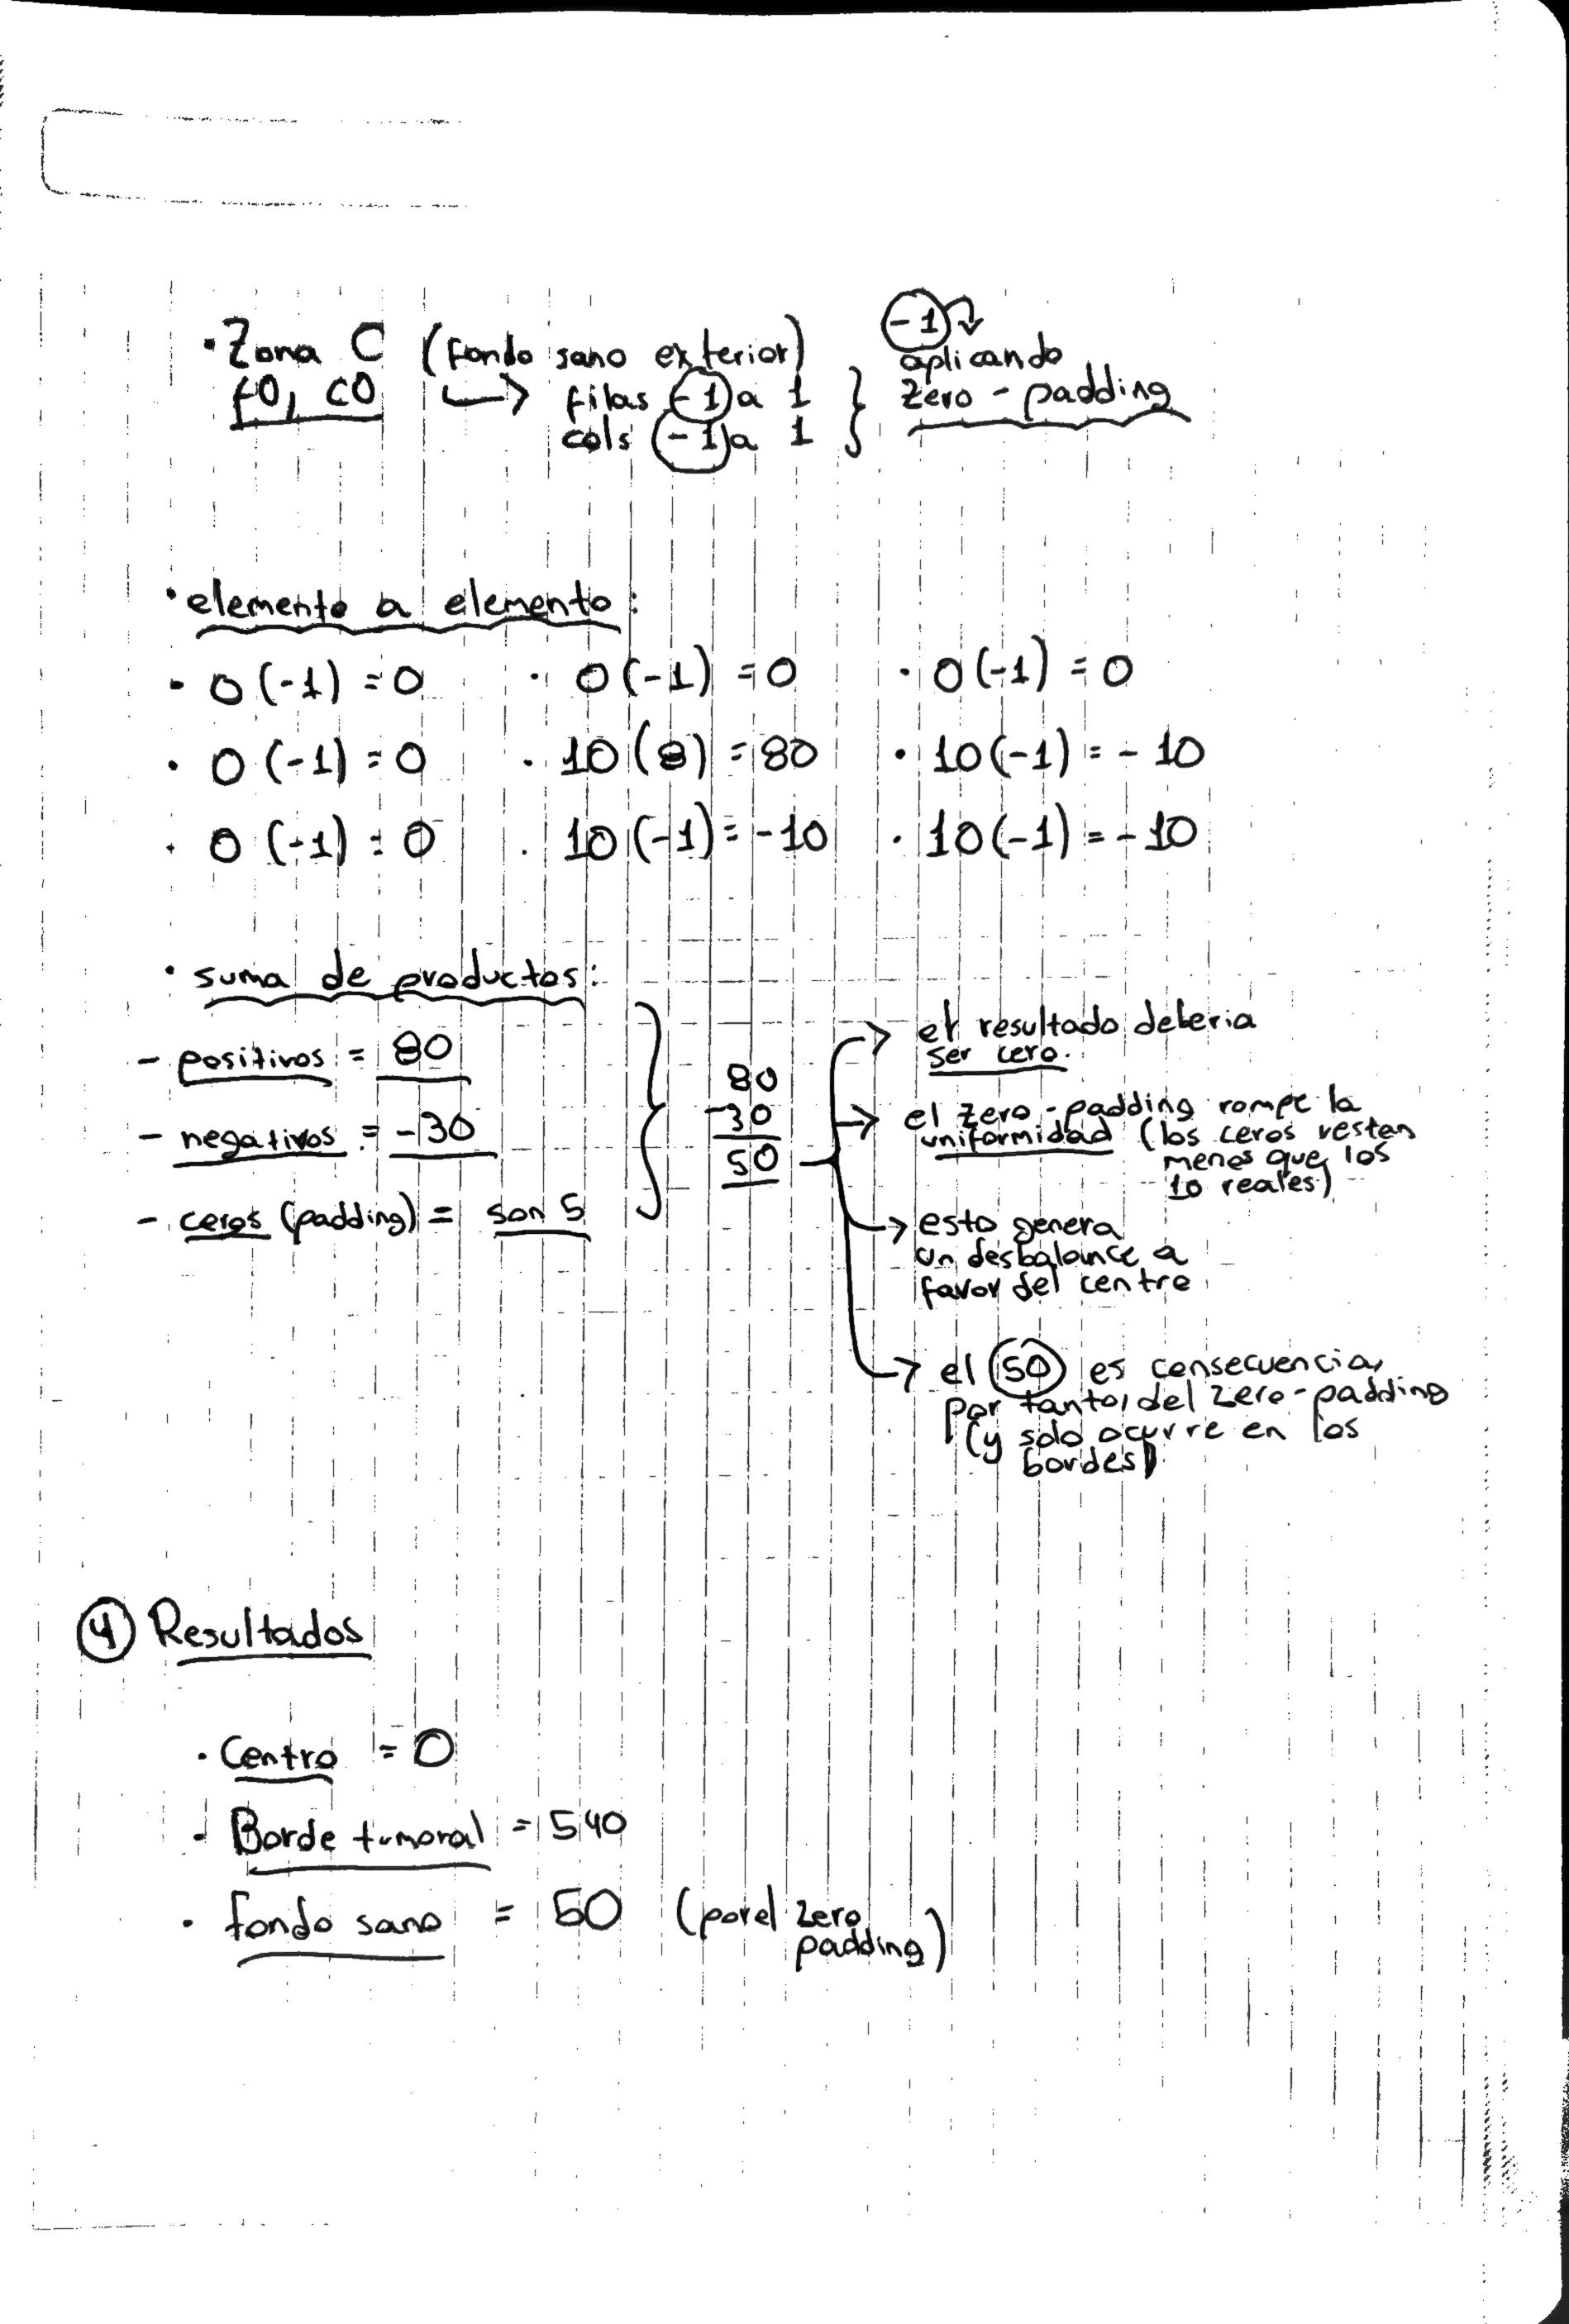 · Zona C (fondo sano exterior)
f0, c0 → filas -1 a 1
cols -1 a 1
-1
aplicando
zero-padding
· elemento a elemento:
· 0(-1)=0 · 0(-1)=0 · 0(-1)=0
· 0(-1)=0 · 10(8)=80 · 10(-1)=-10
· 0(-1)=0 · 10(-1)=-10 · 10(-1)=-10
· suma de productos:
- positivos = 80
- negativos = -30
- ceros (padding) = son 5
80
-30
50
→ el resultado deberia
ser cero.
→ el zero-padding rompe la
uniformidad (los ceros restan
menos que los
10 reales)
→ esto genera
un desbalance a
favor del centro
→ el 50 es consecuencia,
por tanto, del zero-padding
(y solo ocurre en los
bordes)
4 Resultados
· Centro = 0
· Borde tumoral = 540
· fondo sano = 50 (por el zero
padding)